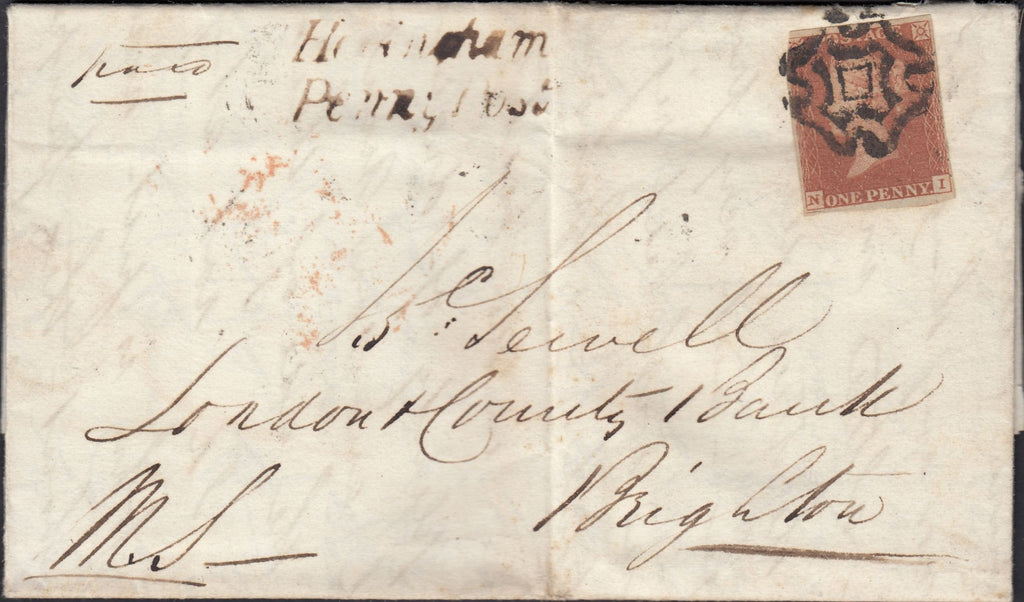 paid
Penny Post
POSTAGE
N ONE PENNY I
Sewell
London & County Bank
Brighton
MS